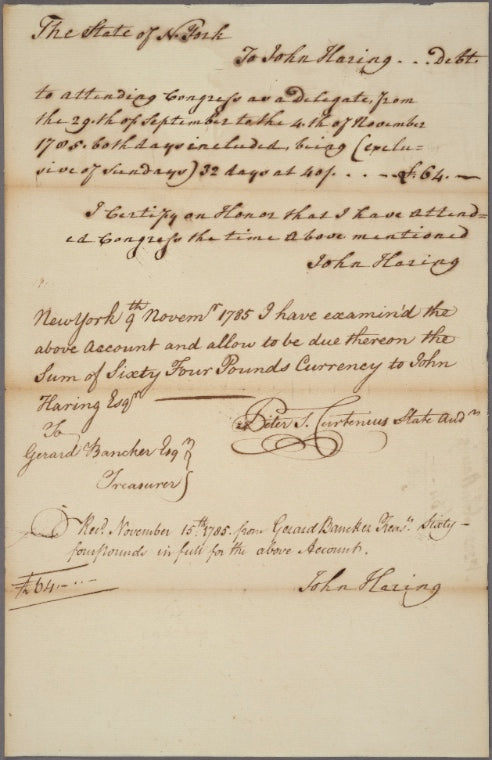 The State of N. York
To John Haring . . . Debt.
to attending Congress as a Delegate, from
the 29.th of September to the 4.th of November
1785. both days included, being (exclu=
sive of Sundays) 32 days at 40/. . . . - £64. —
I Certify on Honor that I have attend=
ed Congress the time above mentioned
John Haring
New York 9th Novemr 1785 I have examin'd the
above Account and allow to be due thereon the
Sum of Sixty Four Pounds Currency to John
Haring Esqr
Peter T. Curtenius State Audr
To
Gerard Bancker Esqr
Treasurer
Recd. November 15.th 1785. from Gerard Bancker Treasr. Sixty-
four pounds in full for the above Account.
£64. - . . -
John Haring